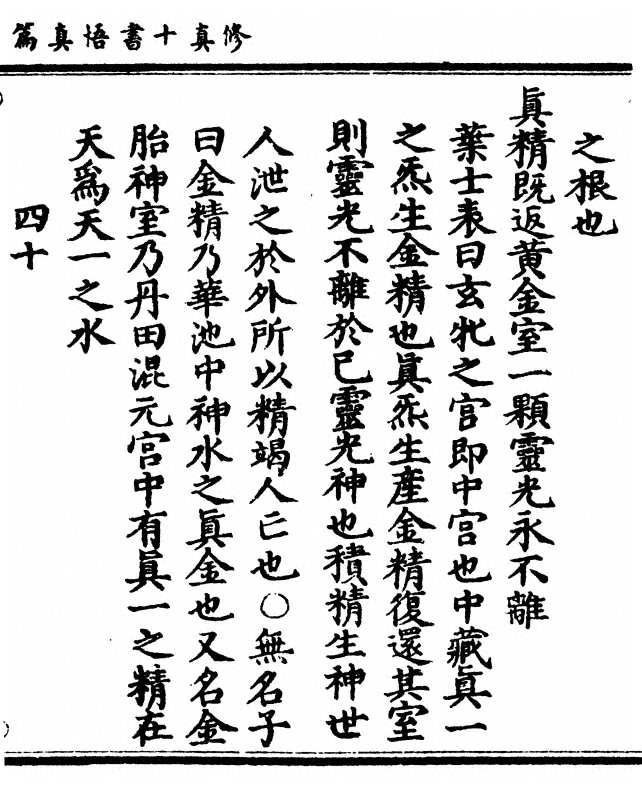 修真十書悟真篇
之根也
眞精既返黄金室一顆靈光永不離
葉士表曰玄牝之宫即中宫也中藏眞一
之炁生金精也眞炁生産金精復還其室
則靈光不離於已靈光神也積精生神世
人泄之於外所以精竭人亡也○無名子
曰金精乃華池中神水之眞金也又名金
胎神室乃丹田混元宫中有眞一之精在
天爲天一之水
四十